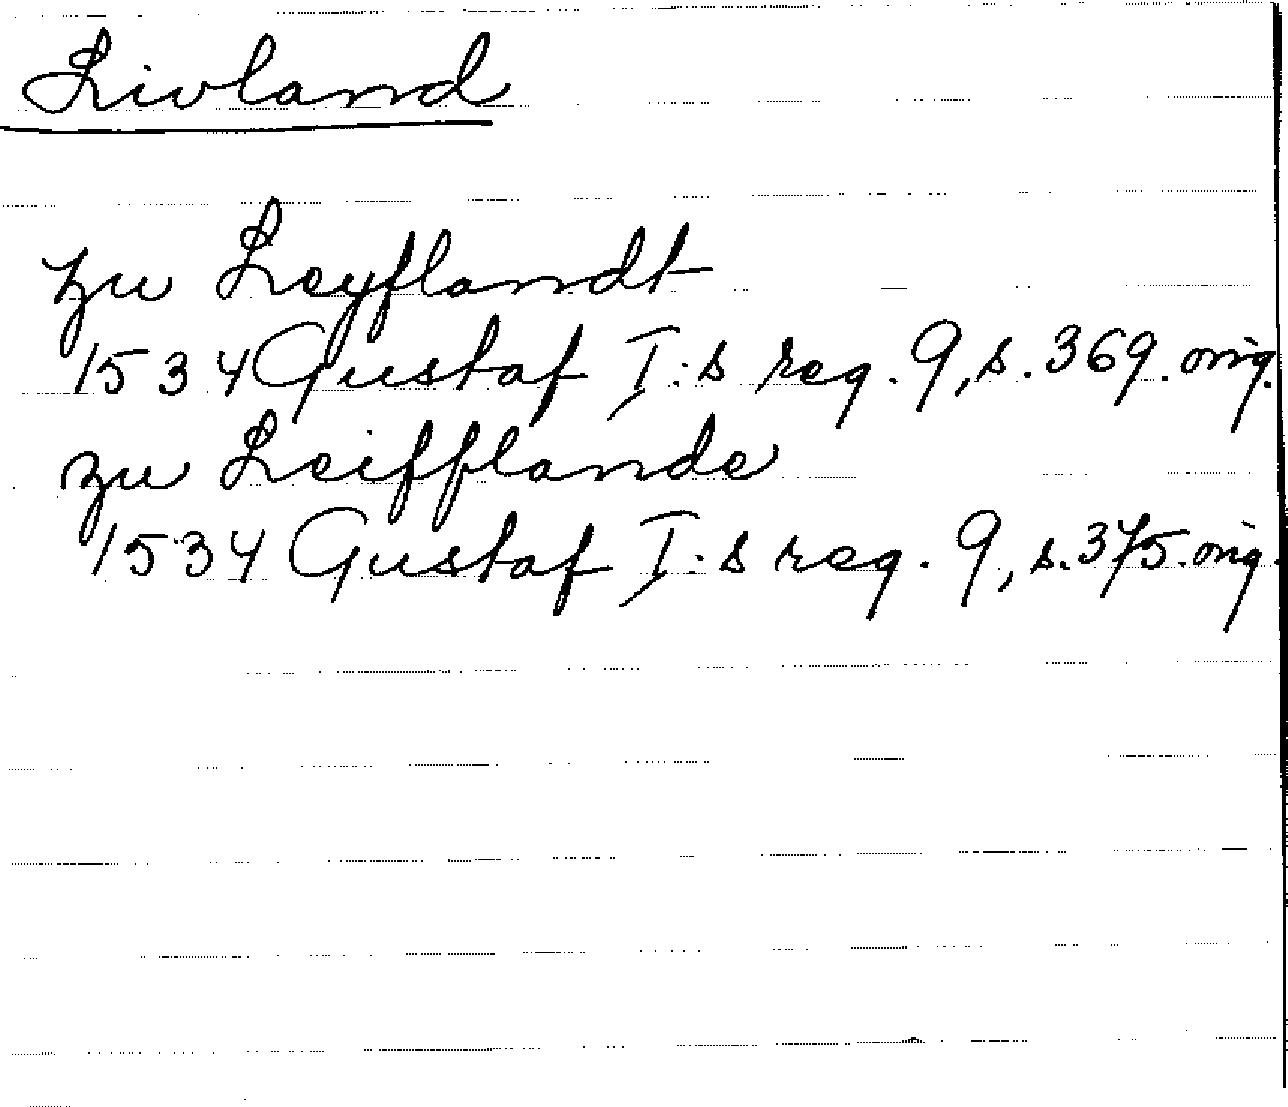 Livland
zu Leyflandt
1534 Gustaf I:s reg. 9, s. 369. orig.
zu Leifflande
1534 Gustaf I:s reg. 9, s. 375. orig.